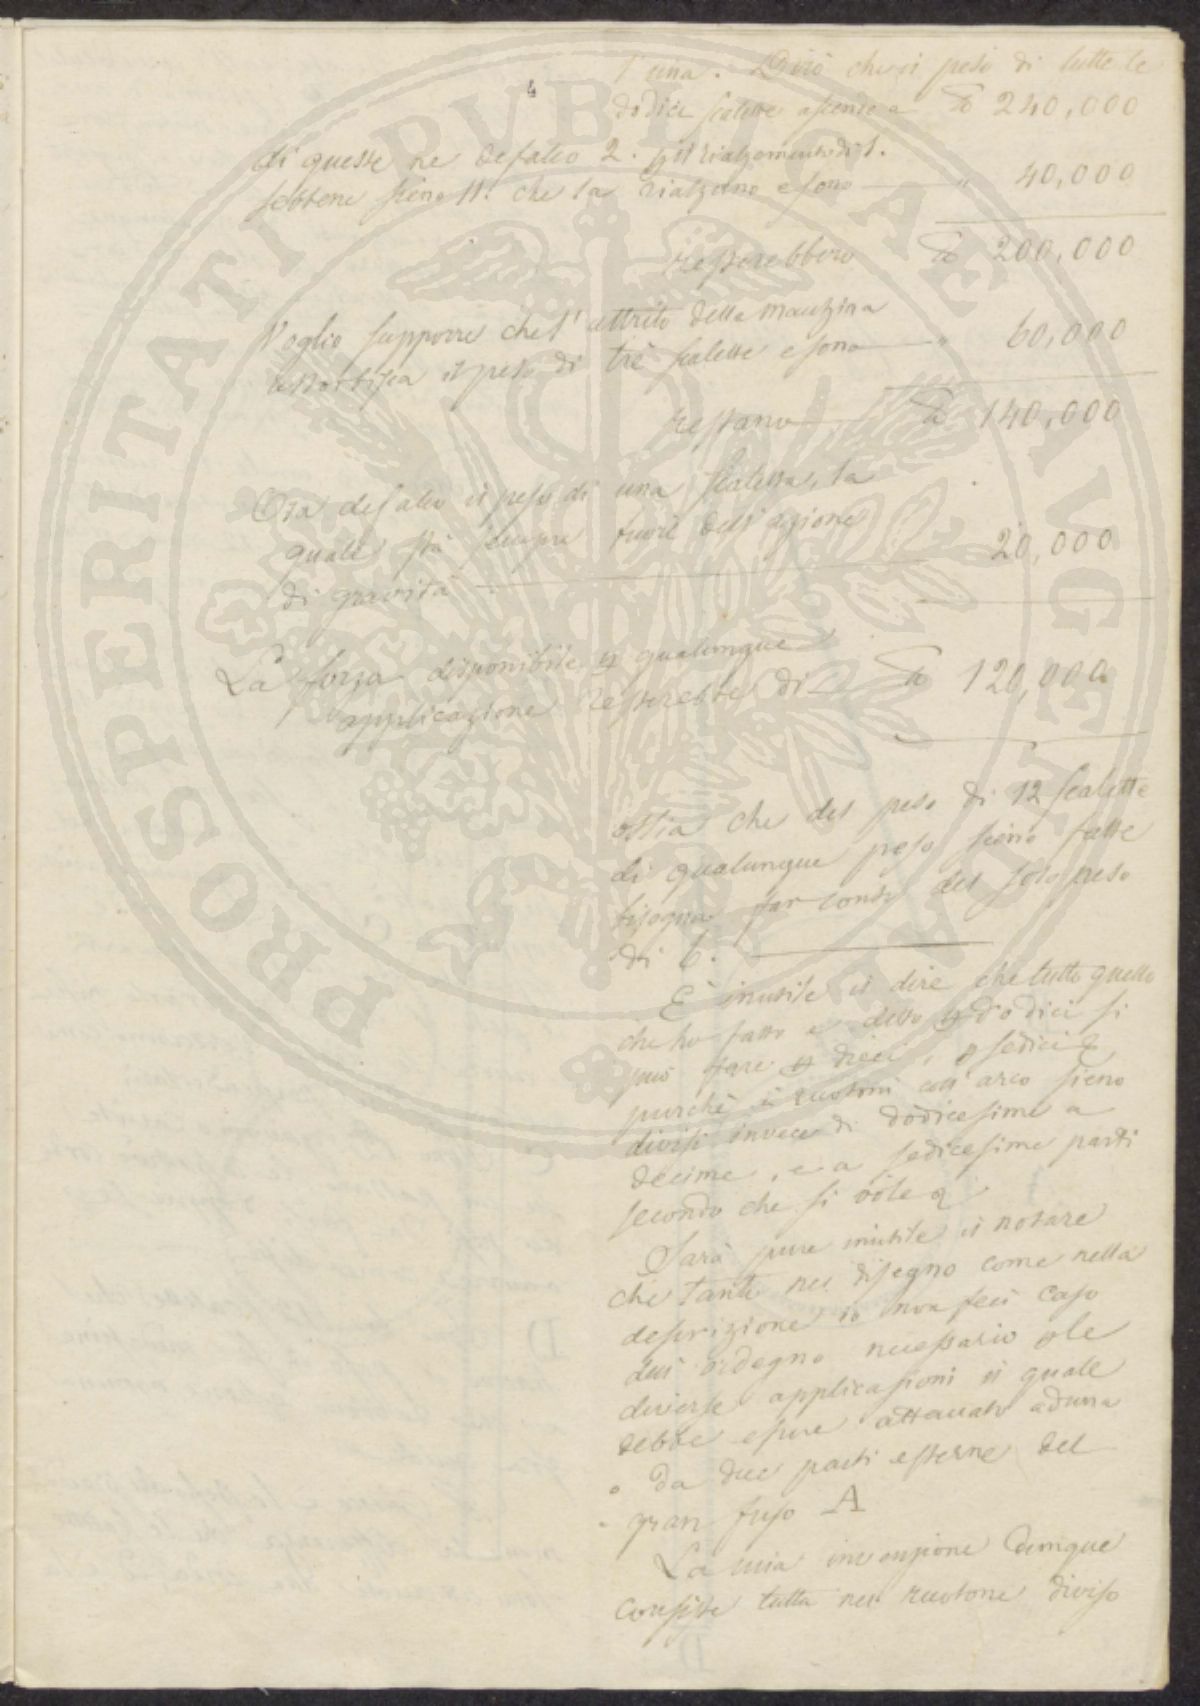 l'una. Dirò che il peso di tutte le
dodici scalette ascende a ℔ 240,000
di queste ne defalco 2. pel rialzamento di 1.
sebbene sieno 11. che la rialzano e sono " 40,000
resterebbero ℔ 200,000
Voglio supporre che l'attrito della macchina
assorbisca il peso di tre scalette e sono " 60,000
restano ℔ 140,000
Ora defalco il peso di una scaletta, la
quale stà sempre fuori dell'azione
di gravità 20,000
La forza disponibile p qualunque
applicazione resterebbe di ℔ 120,000
ossia che del peso di 12 scalette
di qualunque peso sieno fatte
bisogna far conto del solo peso
di 6.
È inutile il dire che tutto quello
che ho fatto e detto p dodici si
può fare p dieci, p sedici &
purchè i ruotoni coll'arco sieno
divisi invece di dodicesime a
decime, e a sedicesime parti
secondo che si vole &
Sarà pure inutile il notare
che tanto nel disegno come nella
descrizione io non feci caso
dell'ordegno necessario p le
diverse applicasioni il quale
debbe essere attaccato ad una
o da due parti esterne del
gran fuso A
La mia invenzione dunque
consiste tutta nel ruotone diviso
PROSPERITATI PVBLICAE AVGENDAE